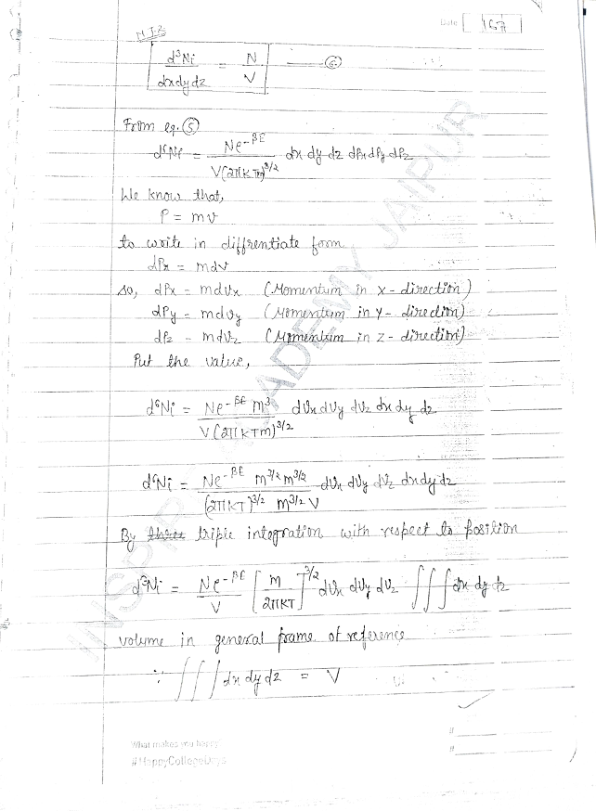 Date
d³Ni / dxdydz = N / V —— ⑥
From eq. ⑤
d⁶Ni = Ne^-βE / V(2πKTm)^3/2 dx dy dz dPx dPy dPz
We know that,
P = mv
to write in diffrentiate form
dPx = mdv
so, dPx = mdvx (Momentum in x-direction)
dPy = mdvy (Momentum in y-direction)
dPz = mdvz (Momentum in z-direction)
Put the value,
d⁶Ni = Ne^-βE m³ / V(2πKTm)^3/2 dvx dvy dvz dx dy dz
d⁶Ni = Ne^-βE m^3/2 m^3/2 / (2πKT)^3/2 m^3/2 V dvx dvy dvz dxdydz
By triple integration with respect to position
d³Ni = Ne^-βE / V [m / 2πKT]^3/2 dvx dvy dvz ∫∫∫ dx dy dz
volume in general frame of reference
∵ ∫∫∫ dx dy dz = V
What makes you happy
#HappyCollegeDays